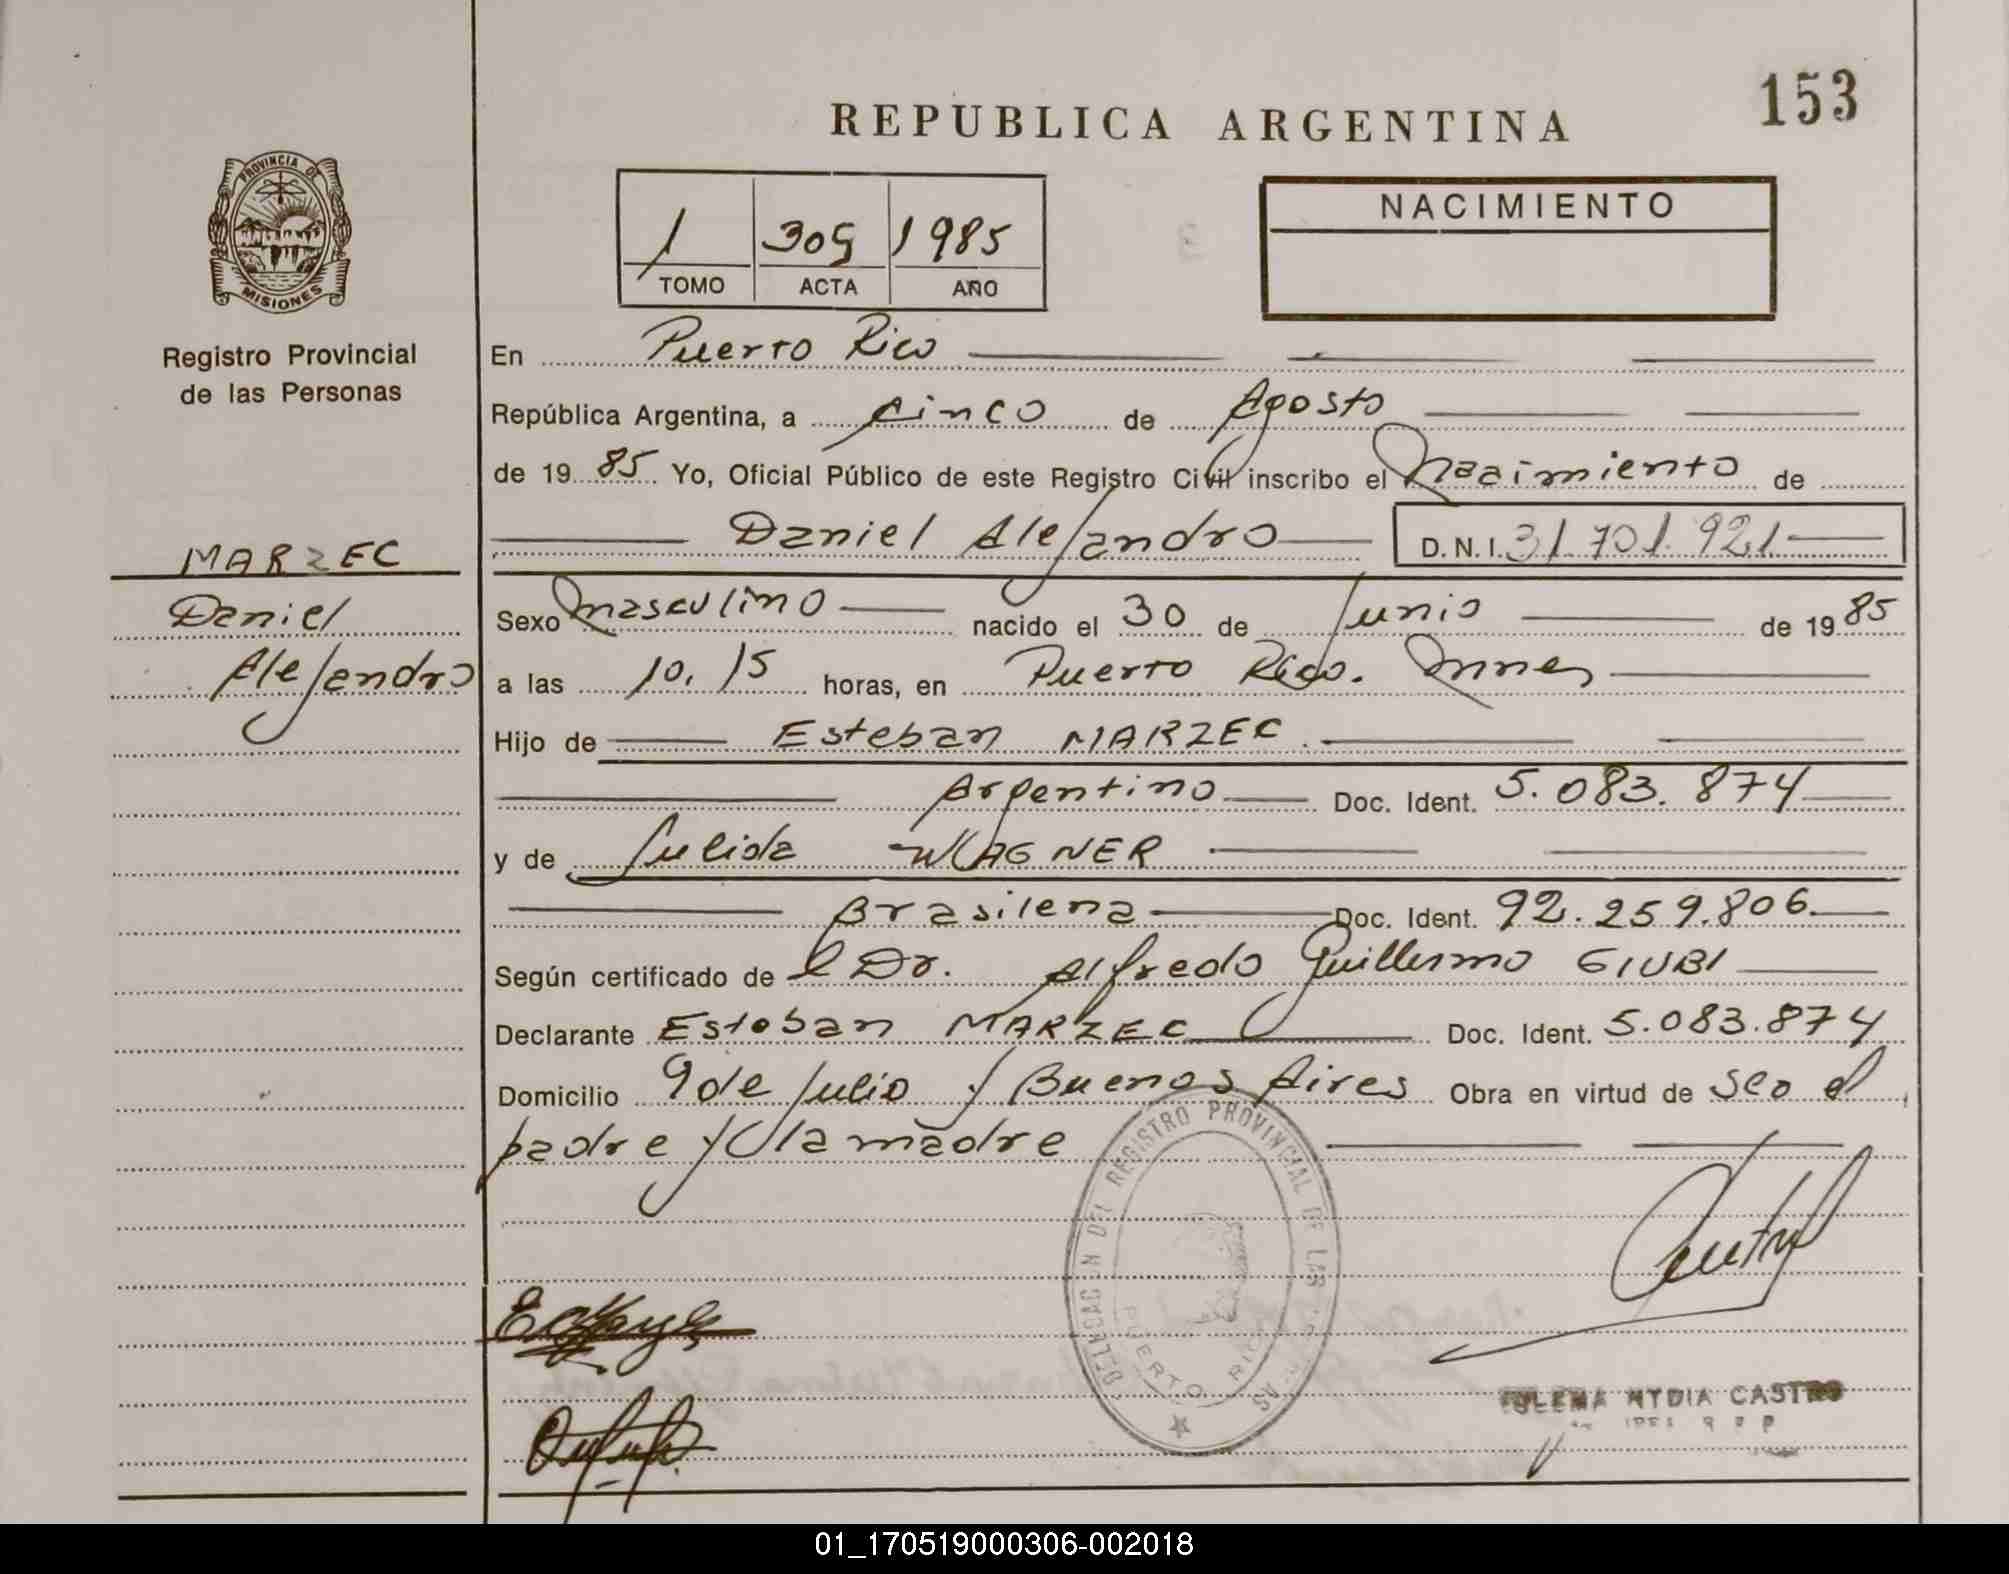 153
REPUBLICA ARGENTINA
PROVINCIA DE
MISIONES
Registro Provincial
de las Personas
NACIMIENTO
1 309 1985
TOMO ACTA AÑO
En Puerto Rico
República Argentina, a cinco de Agosto
de 19 85 Yo, Oficial Público de este Registro Civil inscribo el Nacimiento de
Daniel Alejandro D.N.I. 31.701.921
MARZEC
Daniel
Alejandro
Sexo masculino nacido el 30 de Junio de 19 85
a las 10.15 horas, en Puerto Rico. Mnes
Hijo de Esteban MARZEC
Argentino Doc. Ident. 5.083.874
y de Julida WAGNER
Brasilena Doc. Ident. 92.259.806
Según certificado de l Dr. Alfredo Guillermo GIUBI
Declarante Esteban MARZEC Doc. Ident. 5.083.874
Domicilio 9 de Julio y Buenos Aires Obra en virtud de seo el
padre y la madre
DELEGACION DEL REGISTRO PROVINCIAL DE LAS
PUERTO RICO
NYDIA CASTRO
01_170519000306-002018